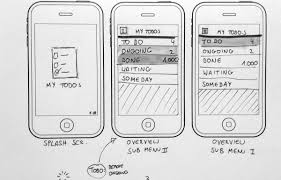 MY TODOS
SPLASH SCR.
MY TODOS
TO DO 4
ONGOING 2
DONE 1.000
WAITING
SOMEDAY
OVERVIEW
SUB MENU II
MY TODOS
TO DO
ONGOING 2
DONE 1.000
WAITING
SOMEDAY
OVERVIEW
SUB MENU I
TODO
ONGOING
3